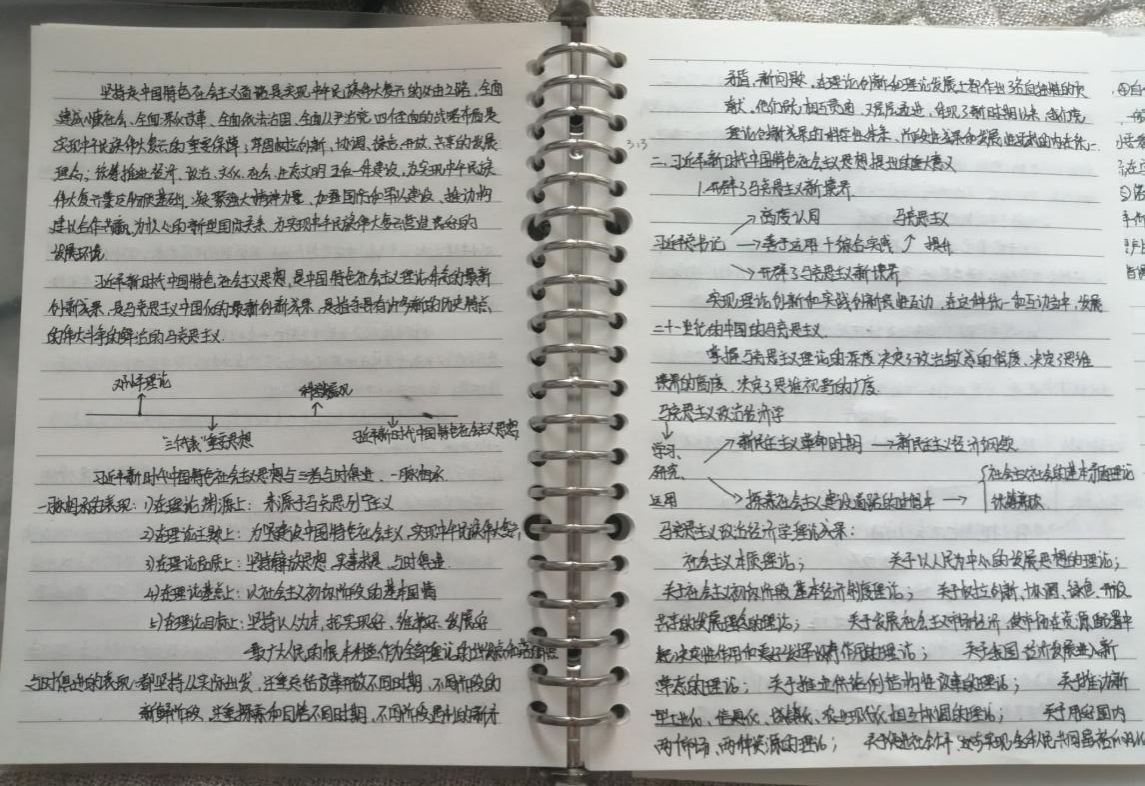 坚持走中国特色社会主义道路是实现中华民族伟大复兴的必由之路,全面
建成小康社会、全面深化改革、全面依法治国、全面从严治党,四个全面的战略布局是
实现中华民族伟大复兴的重要保障;牢固树立创新、协调、绿色、开放、共享的发展
理念;统筹推进经济、政治、文化、社会、生态文明五位一体建设,为实现中华民族
伟大复兴奠定物质基础,凝聚强大精神力量,加强国防和军队建设,推动构
建以合作共赢为核心的新型国际关系,为实现中华民族伟大复兴营造良好的
发展环境.
习近平新时代中国特色社会主义思想,是中国特色社会主义理论体系的最新
创新成果,是马克思主义中国化的最新创新成果,是指导具有许多新的历史特点
的伟大斗争的鲜活的马克思主义.
邓小平理论 科学发展观
"三个代表"重要思想 习近平新时代中国特色社会主义思想
习近平新时代中国特色社会主义思想与三者与时俱进、一脉相承
一脉相承的表现:1)在理论渊源上:来源于马克思列宁主义
2)在理论主题上:为坚持建设中国特色社会主义,实现中华民族伟大复兴
3)在理论品质上:坚持解放思想、实事求是、与时俱进
4)在理论基点上:以社会主义初级阶段的基本国情
5)在理论目标上:坚持以人为本,把实现好、维护好、发展好
最广大人民的根本利益作为全部理论的出发点和落脚点
与时俱进的表现:都坚持从实际出发,注重总结改革开放不同时期,不同阶段的
新鲜阶段,注重探索和回答不同时期,不同阶段遇到的新矛
矛盾,新问题,在理论创新和理论发展上都作出了各自独特的贡
献.他们既相互贯通,又层层递进,体现了新时期以来,我们党
理论创新成果的科学性体系、阶段性成果和发展性要求的内在统一.
二、习近平新时代中国特色社会主义思想提出的重大意义
1.开辟了马克思主义新境界
高度认同 马克思主义
习近平总书记 善于运用+结合实践 提升
开辟了马克思主义新境界
实现理论创新和实践创新良性互动,在这种统一和互动当中,发展
二十一世纪的中国的马克思主义.
掌握马克思主义理论的深度,决定了政治敏感的程度,决定了思维
境界的高度,决定了思维视野的广度.
马克思主义政治经济学
学习、 新民主主义革命时期→新民主主义经济纲领
研究、 社会主义社会的基本矛盾理论
运用 探索社会主义建设道路的过程中→ 统筹兼顾
马克思主义政治经济学理论成果:
社会主义本质理论; 关于以人民为中心的发展思想的理论;
关于社会主义初级阶段基本经济制度理论; 关于树立创新、协调、绿色、开放、
共享的发展理念的理论; 关于发展社会主义市场经济,使市场在资源配置中
起决定性作用和更好发挥政府作用的理论; 关于我国经济发展进入新
常态的理论; 关于推进供给侧结构性改革的理论; 关于推动新
型工业化、信息化、城镇化、农业现代化相互协调的理论; 关于用好国内
两个市场、两种资源的理论; 关于促进社会公平、逐步实现全体人民共同富裕的理论